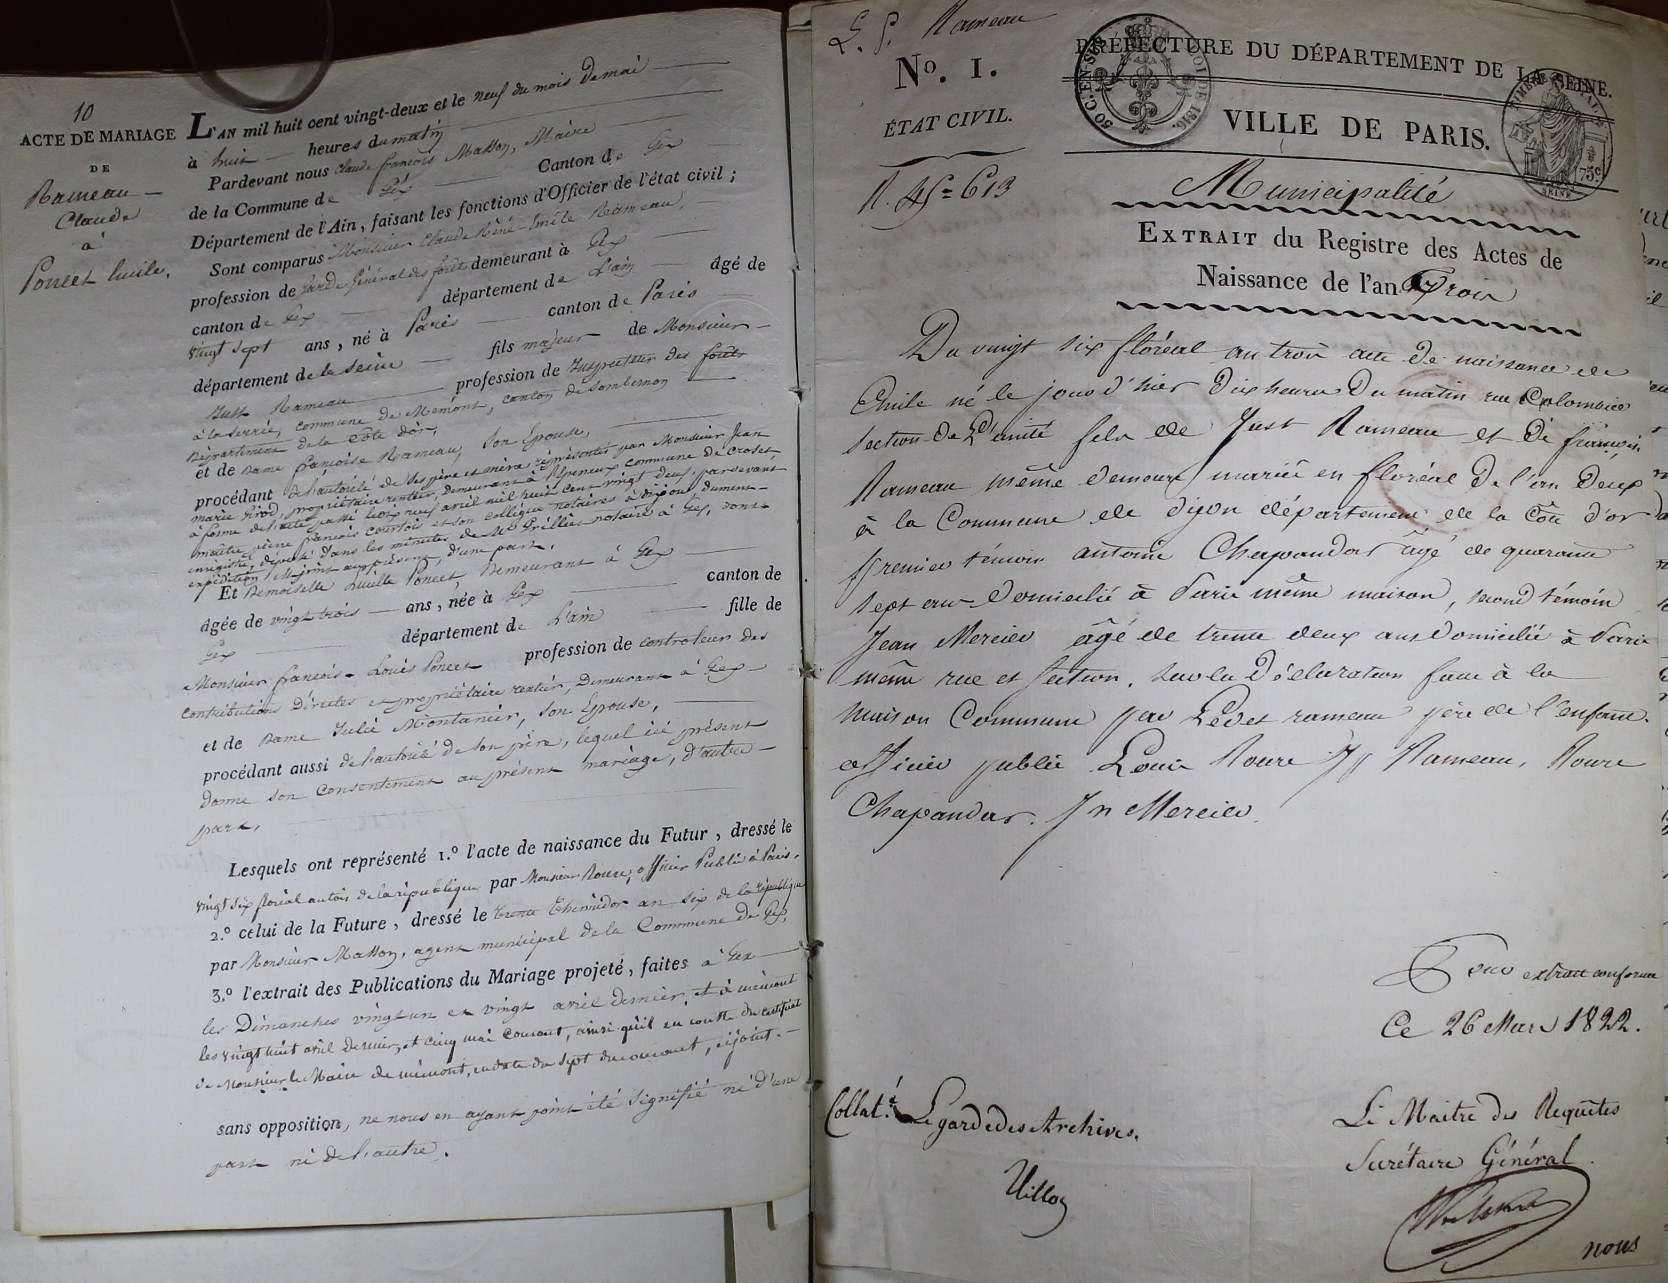 10
ACTE DE MARIAGE
DE
Rameau
Claude
à
Poncet lucile.
L'AN mil huit cent vingt-deux et le neuf du mois de mai
à huit heures du matin
Pardevant nous Claude françois Masson, Maire
de la Commune de Gex Canton de Gex
Département de l'Ain, faisant les fonctions d'Officier de l'état civil;
Sont comparus Monsieur Claude Réné Emile Rameau,
profession de garde Général des forêts demeurant à Gex
canton de Gex département de L'ain âgé de
vingt sept ans, né à Paris canton de Paris
département de la Seine fils majeur de Monsieur
Just Rameau profession de Inspecteur des forêts
à la Serrée, commune de Mémont, canton de Sombernon
Département de la Côte d'or,
et de Dame françoise Rameau, son Epouse,
procédant de l'autorité de ses père et mère représentés par Monsieur Jean
marie Girod, propriétaire rentier, demeurant à Afpeneux commune de Crozet
à forme de l'acte passé le dix neuf avril mil huit cent vingt deux, pardevant
maître pierre françois Courtois et son collègue notaires à Dijon dument
enregistré, déposé dans les minutes de Me Grillier notaire à Gex, dont
expédition est jointe au présent, d'une part.
Et Demoiselle Lucille Poncet, Demeurant à Gex
âgée de vingt trois ans, née à Gex canton de
Gex département de L'ain fille de
Monsieur françois Louis Poncet profession de controleur des
contributions Directes et propriétaire rentier, Demeurant à Gex
et de Dame Julie Montanier, son Epouse,
procédant aussi de l'autorité de son père, lequel ici présent
donne son consentement au présent mariage, d'autre
part,
Lesquels ont représenté 1.º l'acte de naissance du Futur, dressé le
vingt six floréal an trois de la république par Monsieur Roure, officier Public à Paris,
2.º celui de la Future, dressé le trente Thermidor an six de la république
par Monsieur Masson, agent municipal de la Commune de Gex,
3.º l'extrait des Publications du Mariage projeté, faites à Gex
les Dimanches vingt un et vingt avril dernier, et à mémont
les vingt huit avril dernier, et cinq mai courant, ainsi qu'il en conste du certificat
de Monsieur le Maire de mémont, en date du sept du courant, ci joint.
sans opposition, ne nous en ayant point été signifié ni d'une
part ni de l'autre.
L. P. Rameau
Nº. 1.
ÉTAT CIVIL.
50 C. EN SUS
LOI DE 1816.
PRÉFECTURE DU DÉPARTEMENT DE LA SEINE.
VILLE DE PARIS.
TIMBRE ROYAL
75c
SEINE
Municipalité
EXTRAIT du Registre des Actes de
Naissance de l'an Trois
Du vingt six floréal an trois acte de naissance de
Emile né le jour d'hier dix heures du matin rue Colombier
section de L'unité fils de Just Rameau et de françoise
Rameau même demeure mariés en floréal de l'an deux
à la Commune de dijon département de la Côte d'or
premier témoin antoine Chapandar âgé de quarante
sept ans domicilié à Paris même maison, second témoin
Jean Mercier âgé de trente deux ans domicilié à Paris
même rue et section. Sur la Déclaration faite à la
maison Commune par Ledet rameau père de l'enfant.
officier public Louis Roure Jj Rameau, Roure
Chapandar. Jn Mercier.
Pour extrait conforme
Ce 26 Mars 1822.
Collat.é Le garde des Archives.
Villot
Le Maitre des Requêtes
Secrétaire Général.
nous